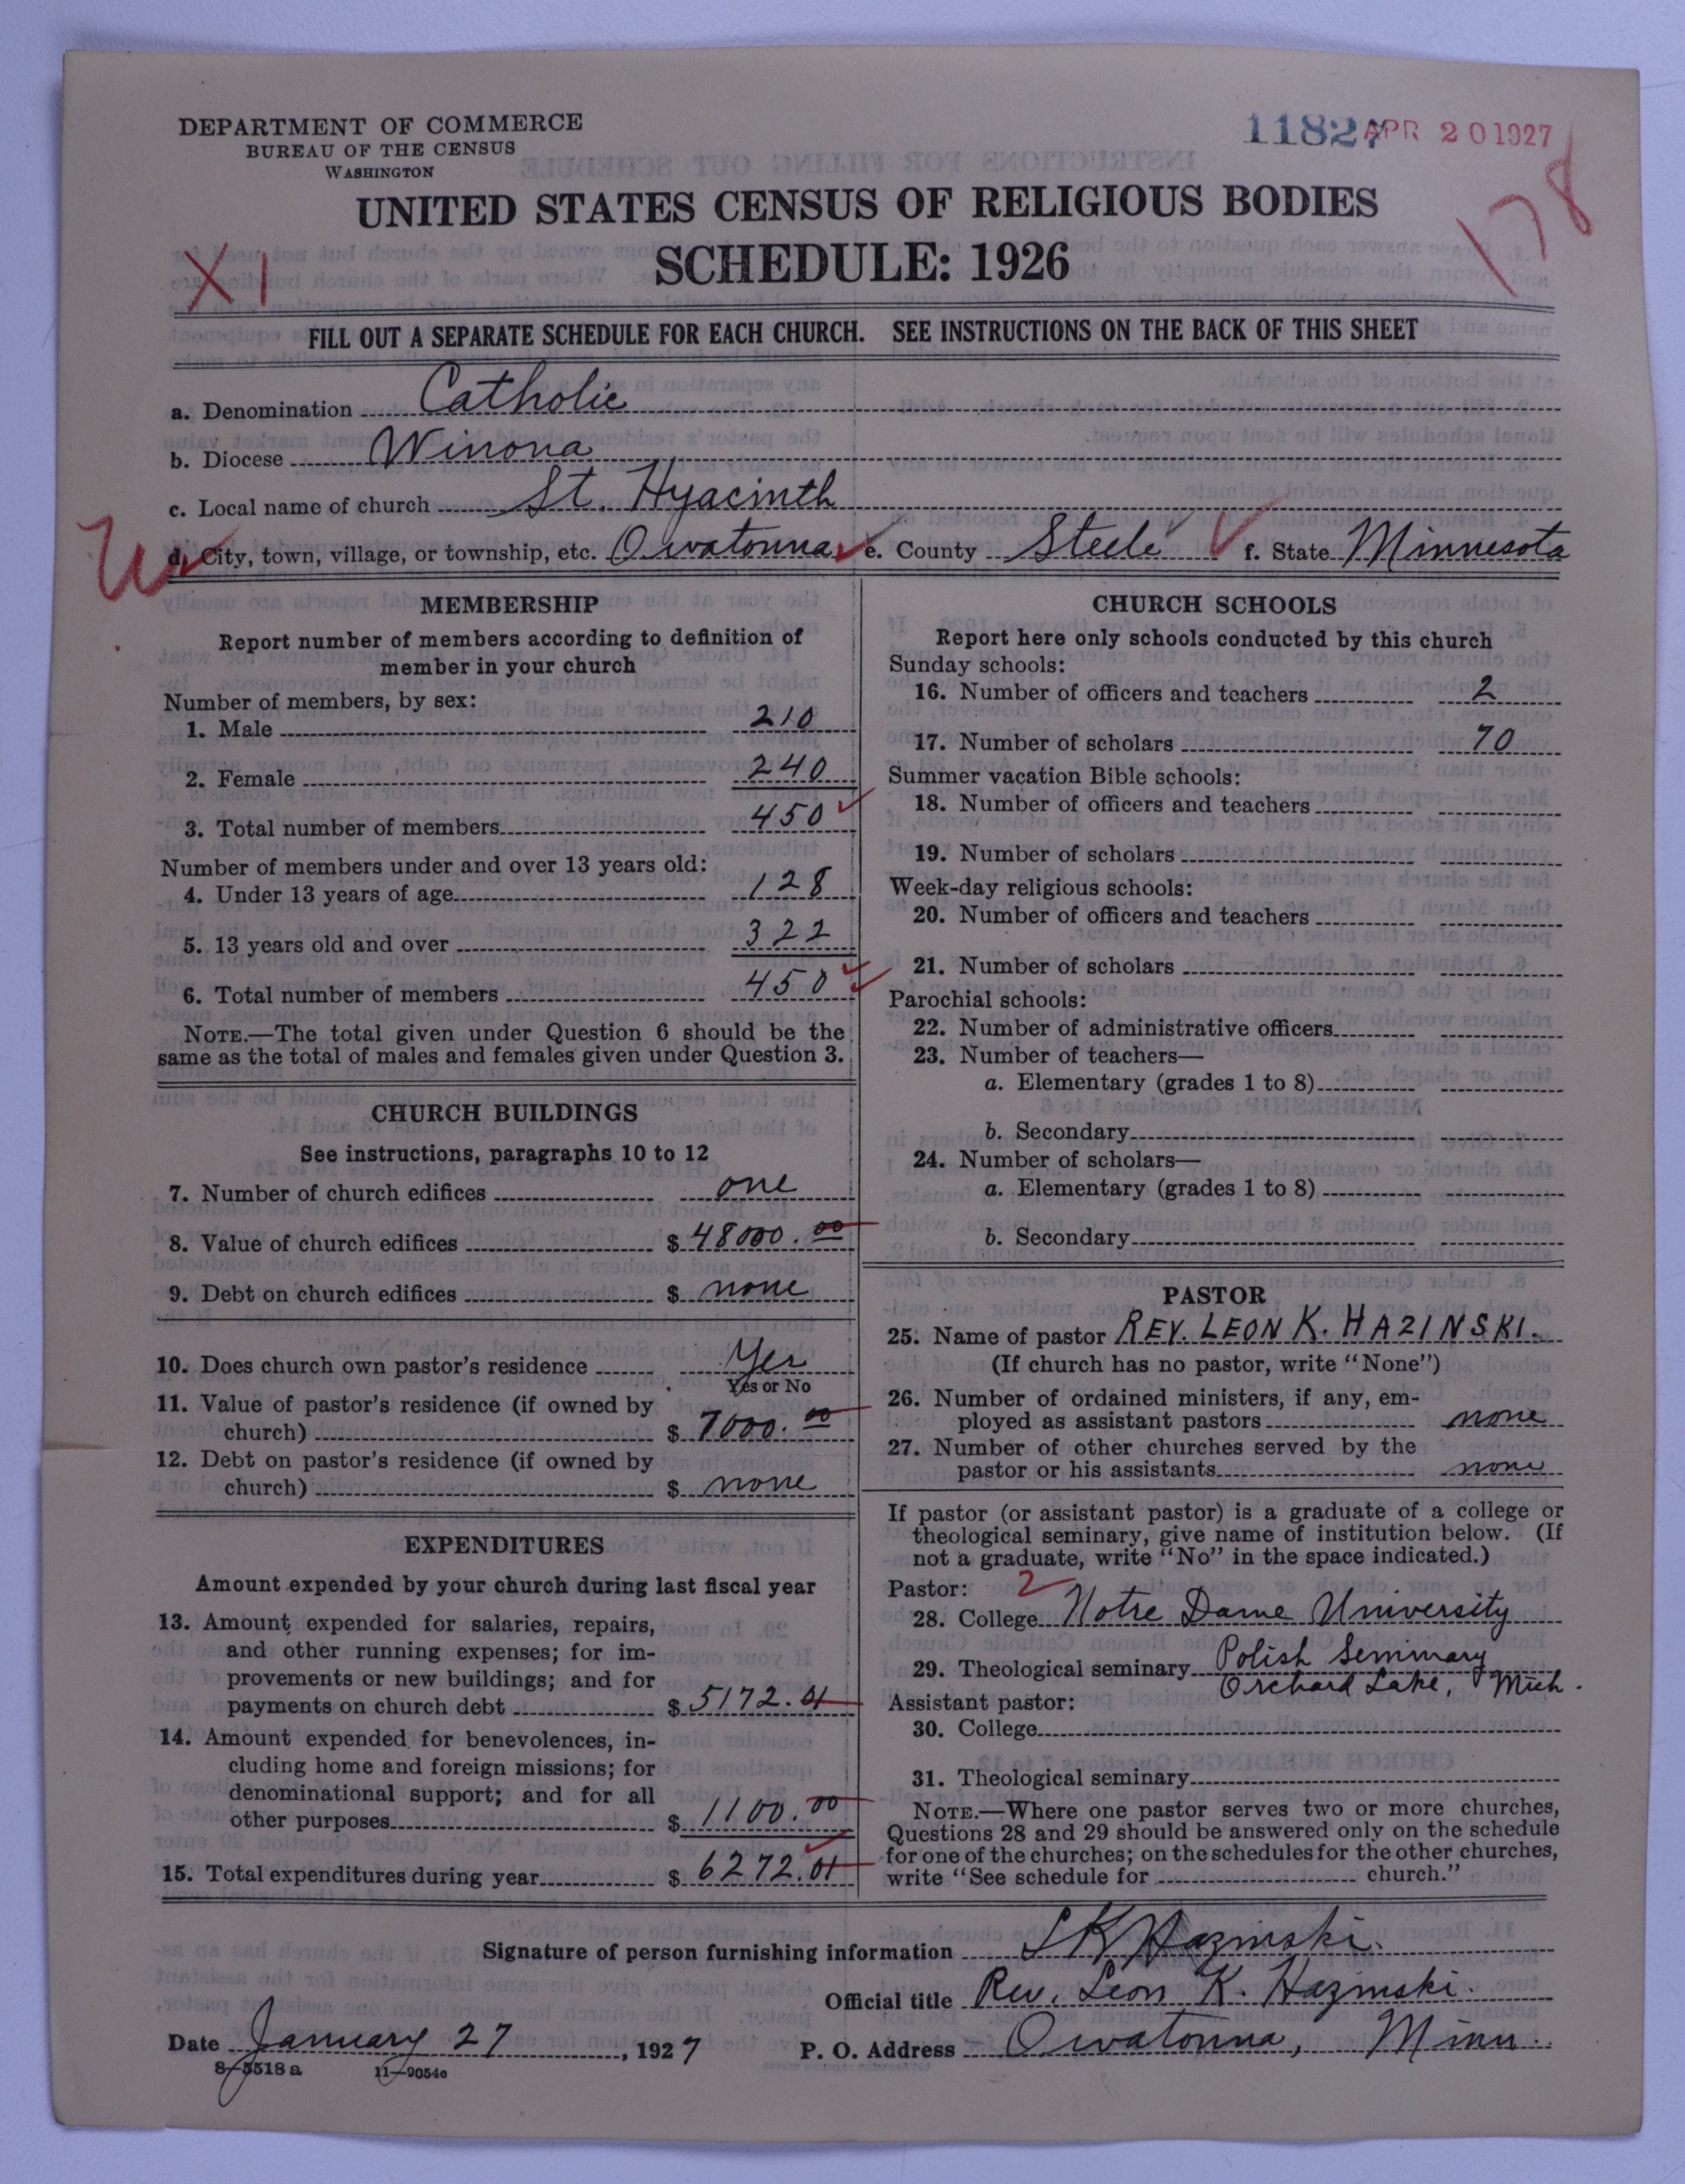 DEPARTMENT OF COMMERCE
BUREAU OF THE CENSUS
WASHINGTON
11827 APR 20 1927
UNITED STATES CENSUS OF RELIGIOUS BODIES
SCHEDULE: 1926
XI
178
FILL OUT A SEPARATE SCHEDULE FOR EACH CHURCH. SEE INSTRUCTIONS ON THE BACK OF THIS SHEET
a. Denomination Catholic
b. Diocese Winona
c. Local name of church St. Hyacinth
d. City, town, village, or township, etc. Owatonna e. County Steele f. State Minnesota
MEMBERSHIP
Report number of members according to definition of
member in your church
Number of members, by sex:
1. Male 210
2. Female 240
3. Total number of members 450
Number of members under and over 13 years old:
4. Under 13 years of age 128
5. 13 years old and over 322
6. Total number of members 450
NOTE.—The total given under Question 6 should be the
same as the total of males and females given under Question 3.
CHURCH BUILDINGS
See instructions, paragraphs 10 to 12
7. Number of church edifices one
8. Value of church edifices $ 48000.00
9. Debt on church edifices $ none
10. Does church own pastor's residence Yes
Yes or No
11. Value of pastor's residence (if owned by
church) $ 7000.00
12. Debt on pastor's residence (if owned by
church) $ none
EXPENDITURES
Amount expended by your church during last fiscal year
13. Amount expended for salaries, repairs,
and other running expenses; for im-
provements or new buildings; and for
payments on church debt $ 5172.01
14. Amount expended for benevolences, in-
cluding home and foreign missions; for
denominational support; and for all
other purposes $ 1100.00
15. Total expenditures during year $ 6272.01
CHURCH SCHOOLS
Report here only schools conducted by this church
Sunday schools:
16. Number of officers and teachers 2
17. Number of scholars 70
Summer vacation Bible schools:
18. Number of officers and teachers
19. Number of scholars
Week-day religious schools:
20. Number of officers and teachers
21. Number of scholars
Parochial schools:
22. Number of administrative officers
23. Number of teachers—
a. Elementary (grades 1 to 8)
b. Secondary
24. Number of scholars—
a. Elementary (grades 1 to 8)
b. Secondary
PASTOR
25. Name of pastor REV. LEON K. HAZINSKI.
(If church has no pastor, write "None")
26. Number of ordained ministers, if any, em-
ployed as assistant pastors none
27. Number of other churches served by the
pastor or his assistants none
If pastor (or assistant pastor) is a graduate of a college or
theological seminary, give name of institution below. (If
not a graduate, write "No" in the space indicated.)
Pastor: 2
28. College Notre Dame University
29. Theological seminary Polish Seminary
Orchard Lake, Mich.
Assistant pastor:
30. College
31. Theological seminary
NOTE.—Where one pastor serves two or more churches,
Questions 28 and 29 should be answered only on the schedule
for one of the churches; on the schedules for the other churches,
write "See schedule for church."
Signature of person furnishing information L K Hazinski.
Official title Rev. Leon K. Hazinski.
Date January 27, 1927 P. O. Address Owatonna, Minn.
8-5518a 11-9054o